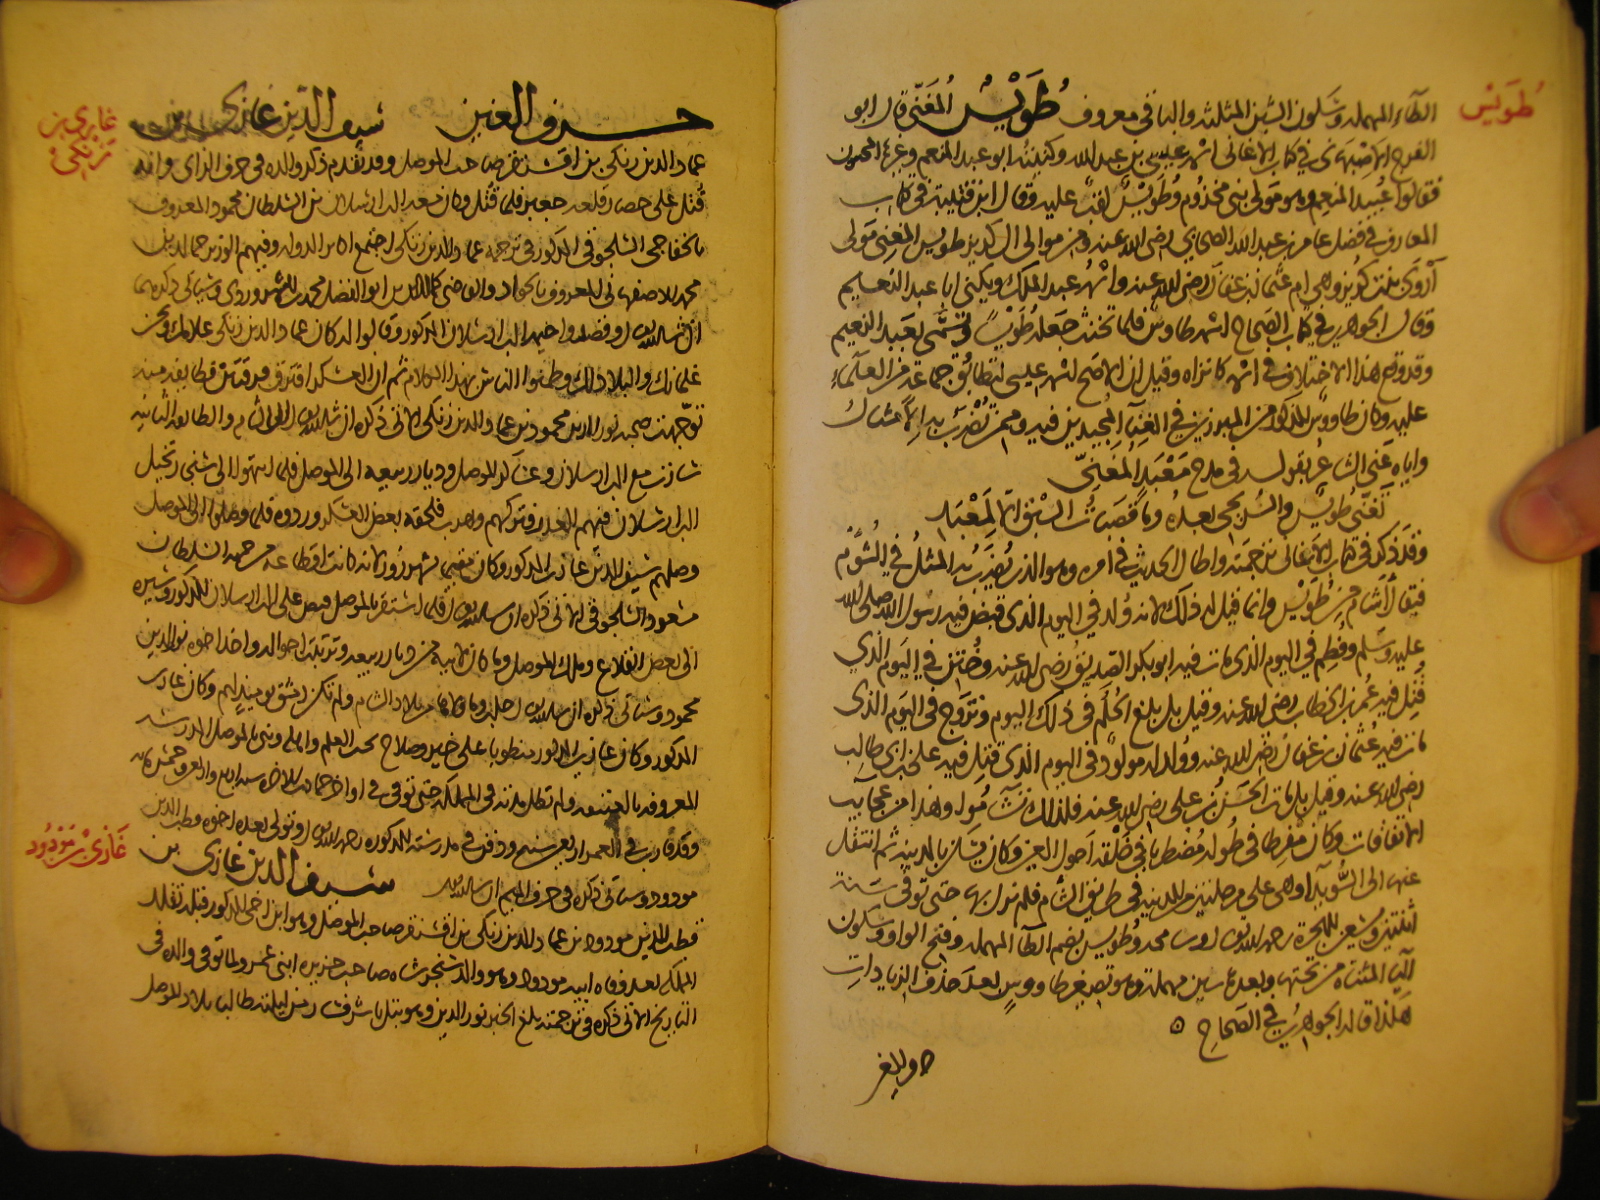 طويس
الطاء المهملة وسكون الشين المثلثة والباقي معروف طُوَيْس المُغَنّي قال ابو
الفرج الاصبهاني في كتاب الاغاني اسمه عيسى بن عبد الله وكنيته ابو عبد المنعم وغيرها المخنثون
فقالوا عبد المنعم وهو مولى بني مخزوم وطويس لقب غلب عليه وقال ابن قتيبة في كتاب
المعارف في فصل عامر بن عبد الله الصحابي رضي الله عنه ومن موالى آل كريز طويس المغني مولى
أروى بنت كريز وهي ام عثمان بن عفان رضي الله عنه واسمه عبد الملك ويكنى ابا عبد النعيم
وقال الجوهري في كتاب الصحاح اسمه طاوس فلما تخنث جعله طويسا وتسمى بعبد النعيم
وقد وقع هذا الاختلاف في اسمه كما تراه وقيل ان الاصح اسمه عيسى لتطابق جماعة من العلماء
عليه وكان طاووس المذكور من المبرزين في الغناء المجيدين فيه وممن تضرب به الامثال
واياه عنى الشاعر بقوله في مدح مَعْبَد المُغَنّي
تغنّى طويس والسريجي بعده وما قصبات السبق الا لمعبد
وقد ذكره في كتاب الاغاني ترجمته واطال الحديث في امره وهو الذي يضرب به المثل في الشؤم
فيقال أشأم من طويس وانما قيل له ذلك لانه ولد في اليوم الذي قبض فيه رسول الله صلى الله
عليه وسلم وفطم في اليوم الذي مات فيه ابو بكر الصديق رضي الله عنه وختن في اليوم الذي
قتل فيه عمر بن الخطاب رضي الله عنه وقيل بل بلغ الحلم في ذلك اليوم وتزوج في اليوم الذي
مات فيه عثمان بن عفان رضي الله عنه وولد له مولود في اليوم الذي قتل فيه علي بن ابي طالب
رضي الله عنه وقيل بل مات الحسن بن علي رضي الله عنه فلذلك تشآءموا به وهذا من عجايب
الاتفاقات وكان مفرطا في طوله مضطربا في خلقه احول العين وكان يسكن بالمدينة ثم انتقل
عنها الى السويداء وهي على مرحلتين من المدينة في طريق الشام فلم يزل بها حتى توفي سنة
اثنتين وتسعين للهجرة رحمه الله تعالى وطويس بضم الطاء المهملة وفتح الواو وسكون
الياء المثناة من تحتها وبعدها سين مهملة وهو تصغير طاووس بعد حذف الزيادات
هكذا قاله الجوهري في الصحاح
حرف الغين سيف الدين غازي بن
غازي بن زنكي
عماد الدين زنكي بن اقسنقر صاحب الموصل وقد تقدم ذكر والده في حرف الزاي وانه
قتل على حصار قلعة جعبر فلما قتل وكان معه الب ارسلان بن السلطان محمود المعروف
بالخفاجي السلجوقي المذكور في ترجمة عماد الدين زنكي اجتمع اكابر الدولة وفيهم الوزير جمال الدين
محمد الاصفهاني المعروف بالجواد والقاضي كمال الدين ابو الفضل محمد الشهرزوري وسياتي ذكرهما
ان شاء الله تعالى وقصدوا خيمة الب ارسلان المذكور وقالوا له كان عماد الدين زنكي غلامك ونحن
غلمانك والبلاد لك وطمنوا الناس بهذا الكلام ثم ان العسكر افترق فرقتين فطايفة منه
توجهت صحبة نور الدين محمود بن عماد الدين زنكي الآتي ذكره ان شاء الله تعالى الى الشام والطايفة الثانية
سارت مع الب ارسلان وعساكر الموصل وديار ربيعة الى الموصل فلما انتهوا الى سنجار تخيل
الب ارسلان منهم الغدر فتركهم وهرب فلحقه بعض العسكر وردوه فلما وصلوا الى الموصل
وصلهم سيف الدين غازي المذكور وكان مقيما بشهرزور لانها كانت اقطاعه من جهة السلطان
مسعود السلجوقي الاتي ذكره ان شاء الله تعالى فلما استقر بالموصل قبض على الب ارسلان المذكور وسيره
الى بعض القلاع وملك الموصل وما كان لابيه من ديار ربيعة وترتبت احواله واخذ اخوه نور الدين
محمود وسياتي ذكره ان شاء الله تعالى حلب وما والاها من بلاد الشام ولم تكن دمشق يوميذ لهم وكان غازي
المذكور وكان غازي المذكور منطويا على خير وصلاح يحب العلم واهله وبنى بالموصل المدرسة
المعروفة بالعتيقة ولم تطل مدته في المملكة حتى توفي في اواخر جمادى الاخرة سنة اربع واربعين وخمسمائة
وقد قارب في العمر اربعين سنة ودفن في مدرسته المذكورة رحمه الله تعالى وتولى بعده اخوه قطب الدين
غازي بن مودود
مودود وسياتي ذكره في حرف الميم ان شاء الله سيف الدين غازي بن
قطب الدين مودود بن عماد الدين زنكي بن اقسنقر صاحب الموصل وهو ابن اخي المذكور قبله تقلد
المملكة بعد وفاة ابيه مودود وهو والد سنجر شاه صاحب جزيرة ابني عمر ولما توفي والده في
التاريخ الاتي ذكره في ترجمته بلغ الخبر نور الدين وهو بتل باشر فسار من ليلته طالبا بلاد الموصل